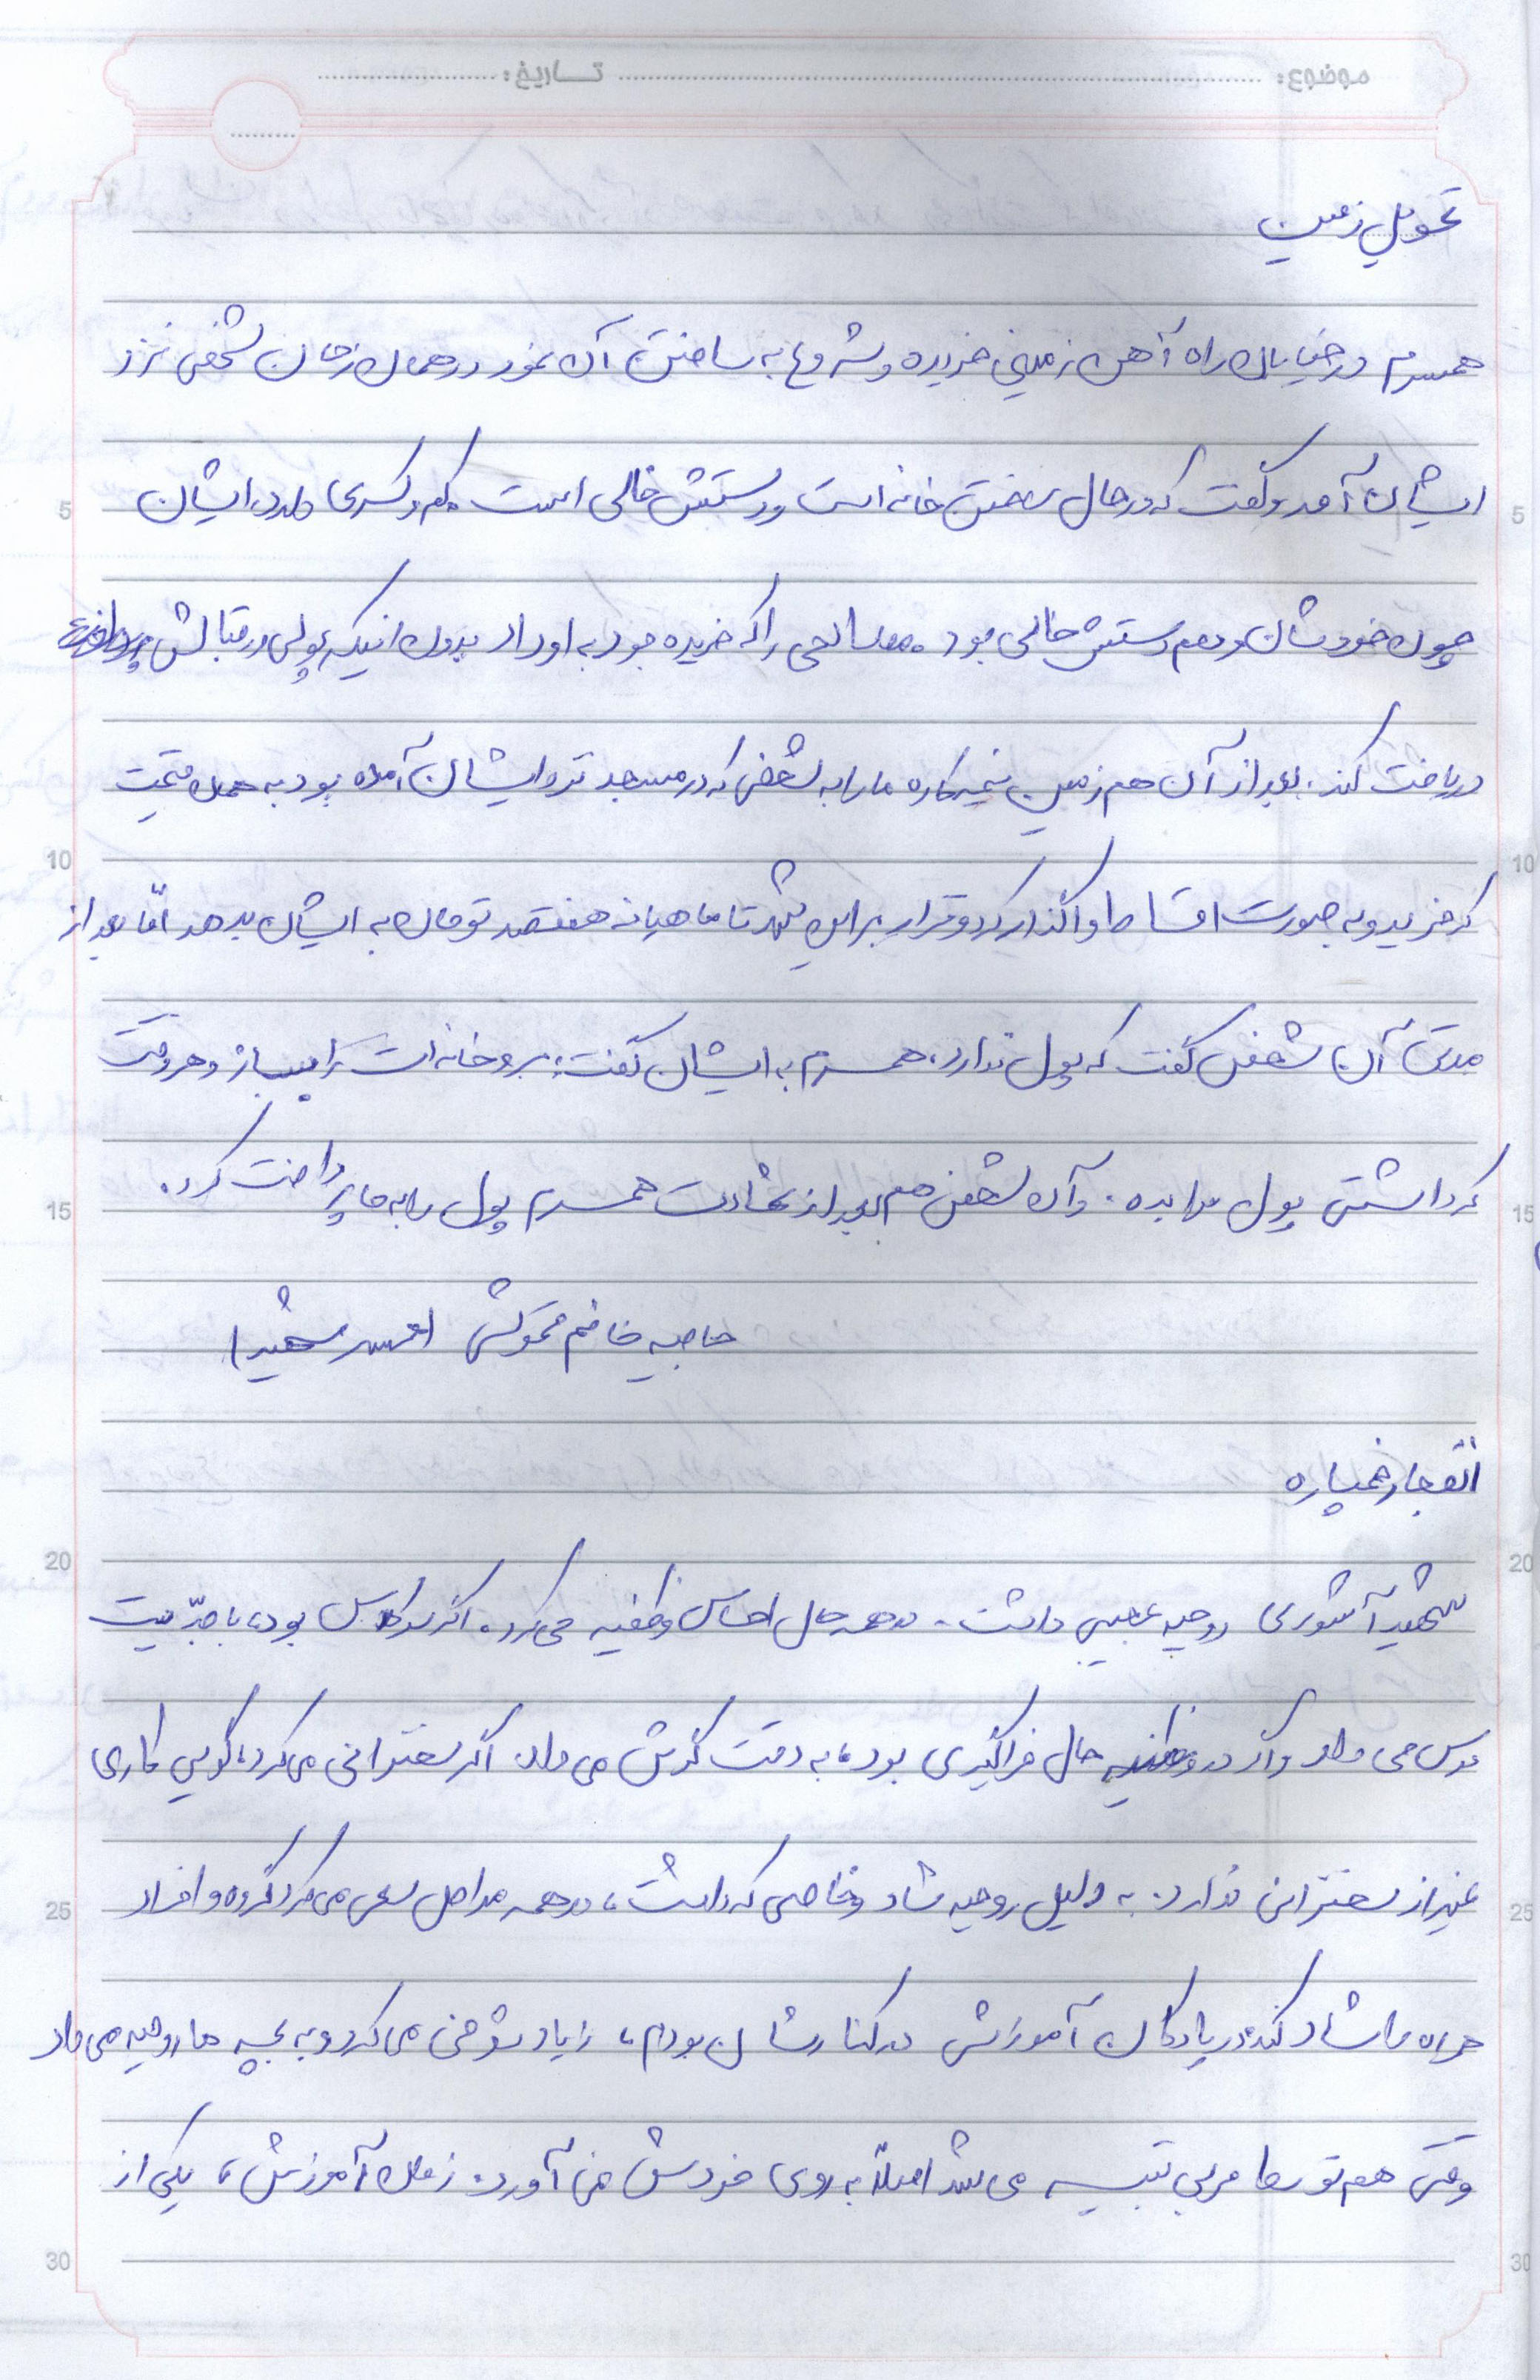 موضوع: تاریخ:
تحویل زمین
همسرم در خیابان راه آهن زمینی خریده و شروع به ساختن آن نمود در همان زمان شخصی نزد
ایشان آمد و گفت که در حال ساختن خانه است و دستش خالی است و کم و کسری دارد، ایشان
چون خودشان هم دستش خالی بود، مصالحی را که خریده بود به او داد بدون اینکه پولی در قبالش
دریافت کند. بعد از آن هم زمین نیمه کاره ما را به شخصی که در مسجد نزد ایشان آمده بود به همان قیمت
که خرید و به صورت اقساط واگذار کرد و قرار بر این شد تا ماهیانه هفتصد تومان به ایشان بدهد اما بعد از
مدتی آن شخص گفت که پول ندارد، همسرم به ایشان گفت: برو خانه ات را بساز و هر وقت
که داشتی پول را بده. و آن شخص هم بعد از شهادت همسرم پول را به ما پرداخت کرد.
حاجیه خانم (همسر شهید)
انفجار خمپاره
شهید آشوری روحیه عجیبی داشت. در همه حال احساس وظیفه می کرد. اگر سر کلاس بود، با جدّیت
درس می داد و اگر در حال فراگیری بود، به دقت گوش می داد. اگر سخنرانی می کرد، گویی کاری
غیر از سخنرانی ندارد. به دلیل روحیه شاد و خاصی که داشت، در همه مراحل سعی می کرد گروه و افراد
همراه را شاد کند، در پادگان آموزشی در کنارشان بودم، زیاد شوخی می کرد و به بچه ها روحیه می داد
وقتی هم توسط مربی تنبیه می شد اصلاً به روی خودش نمی آورد. زمان آموزش، یکی از
5
10
15
20
25
30